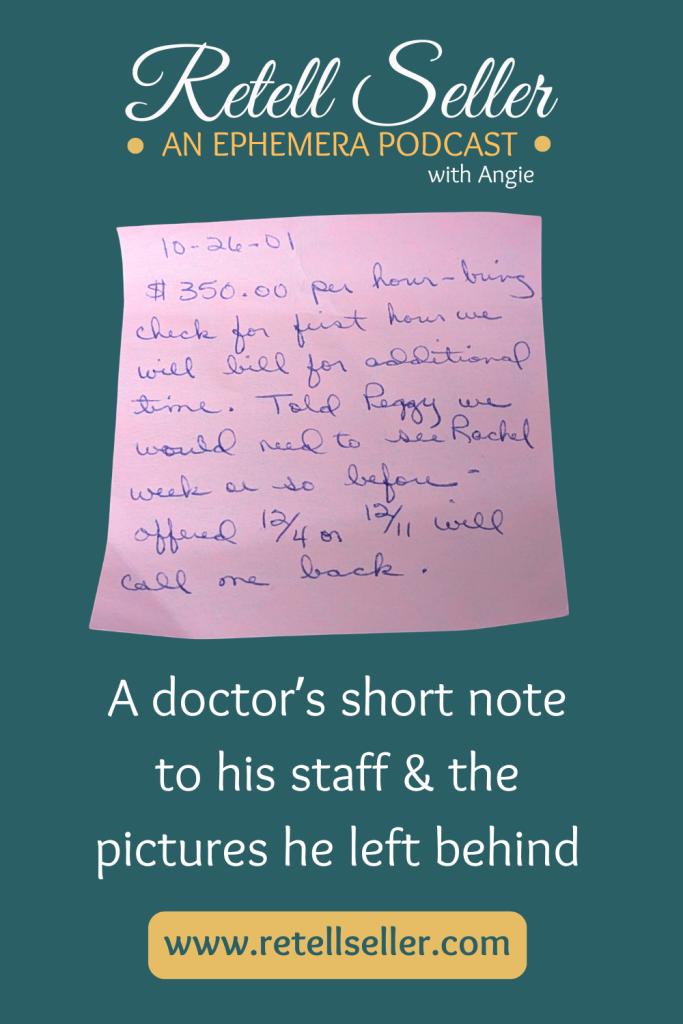 Retell Seller
• AN EPHEMERA PODCAST •
with Angie
10-26-01
$350.00 per hour - bring
check for first hour we
will bill for additional
time. Told Peggy we
would need to see Rachel
week or so before -
offered 12/4 or 12/11 will
call me back.
A doctor's short note
to his staff & the
pictures he left behind
www.retellseller.com